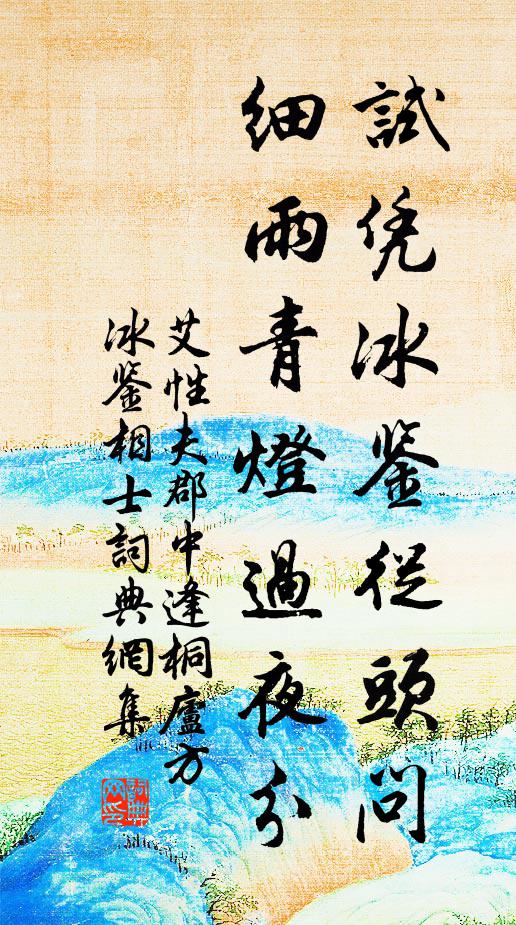 試凭冰鉴從頭問
細雨青燈過夜分
艾性夫郡中逢桐廬方
冰鉴相士詞典網集